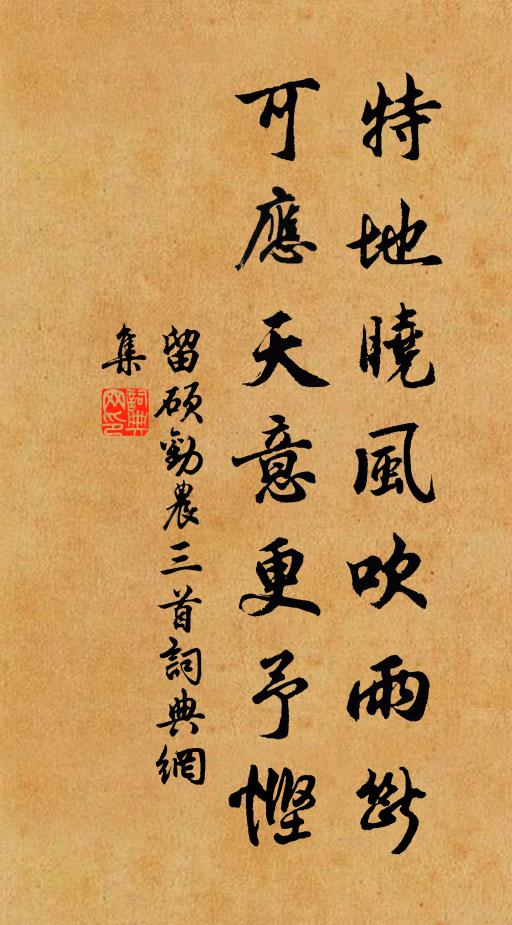 特地曉風吹雨斷
可應天意更予慳
留碩勸農三首詞典網
集
詞典
网印